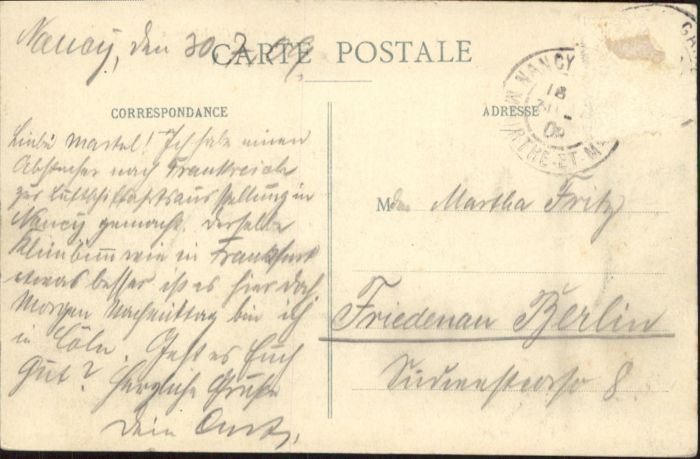 Nancy, den 30.7.09
CARTE POSTALE
CORRESPONDANCE
Liebe Martel! Ich habe einen
Abstecher nach Frankreich
zur Luftschiffahrtsausstellung in
Nancy gemacht. Derselbe
Klimbim wie in Frankfurt
etwas besser ist es hier doch
Morgen Nachmittag bin ich
in Cöln. Geht es Euch
Gut? Herzliche Grüße
Dein
ADRESSE
NANCY
18
09
MEURTHE-ET-M
M Martha Fritz
Friedenau Berlin
8.